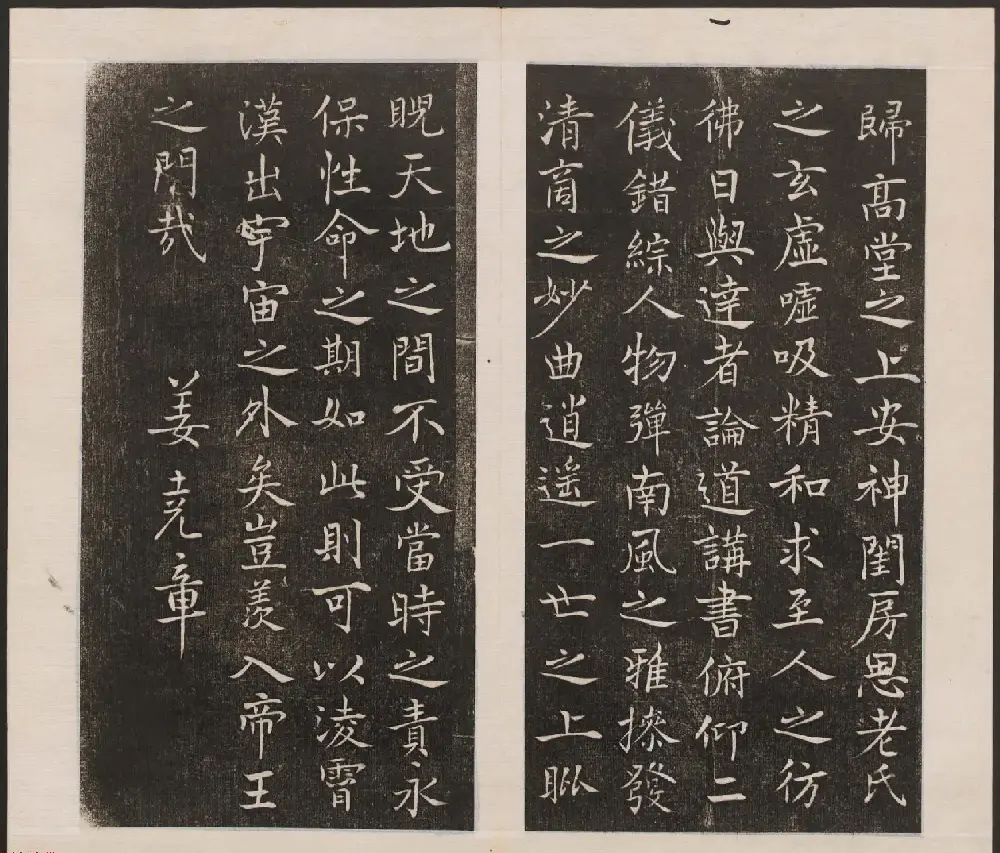 歸高堂之上安神閨房思老氏
之玄虛噓吸精和求至人之彷
彿日與達者論道講書俯仰二
儀錯綜人物彈南風之雅操發
清商之妙曲逍遙一世之上
睨天地之間不受當時之責永
保性命之期如此則可以淩霄
漢出宇宙之外矣豈羨入帝王
之門哉 姜堯章